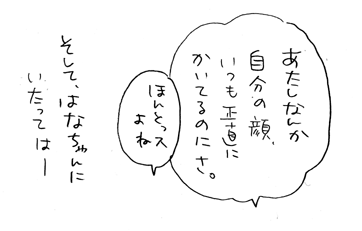 あたしなんか
自分の顔、
いつも正直に
かいてるのにさ。
ほんとっス
よね
そして、はなちゃんに
いたってはー